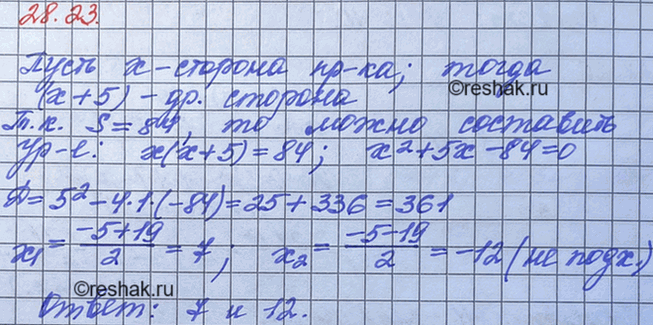 28.23.
Пусть x - сторона пр-ка; тогда
(x+5) - др. сторона
©reshak.ru
Т.к. S=84, то можно составить
ур-е: x(x+5)=84; x²+5x-84=0
D=5²-4·1·(-84)=25+336=361
x₁=(-5+19)/2=7; x₂=(-5-19)/2=-12 (не подх.)
©reshak.ru
Ответ: 7 и 12.